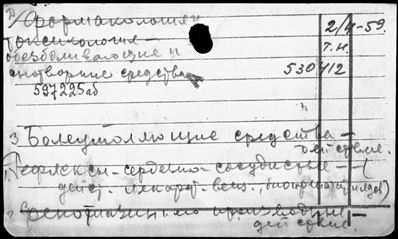 2/ Фармакология и 2/4-59.
токсикология — т.н.
обезболивающие и
снотворные средства 530412
597225аб
3 Болеутоляющие средства —
действие.
1. Рефлексы - сердечно-сосудистые — (
дейст. лекарст. вещ., ядов)
2. фенотиазин, его производные —
действие.